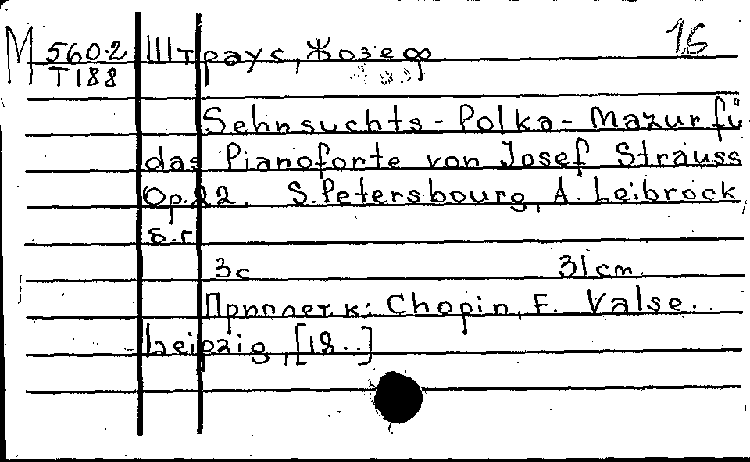 М 560-2 Штраус, Жозеф 16
Т188
Sehnsuchts - Polka - Mazur fü
das Pianoforte von Josef Strauss
Op. 22. S. Petersbourg, A. Leibrock,
б.г
3с 31 cm.
Приплет. к: Chopin, F. Valse.
Leipzig, [18..]